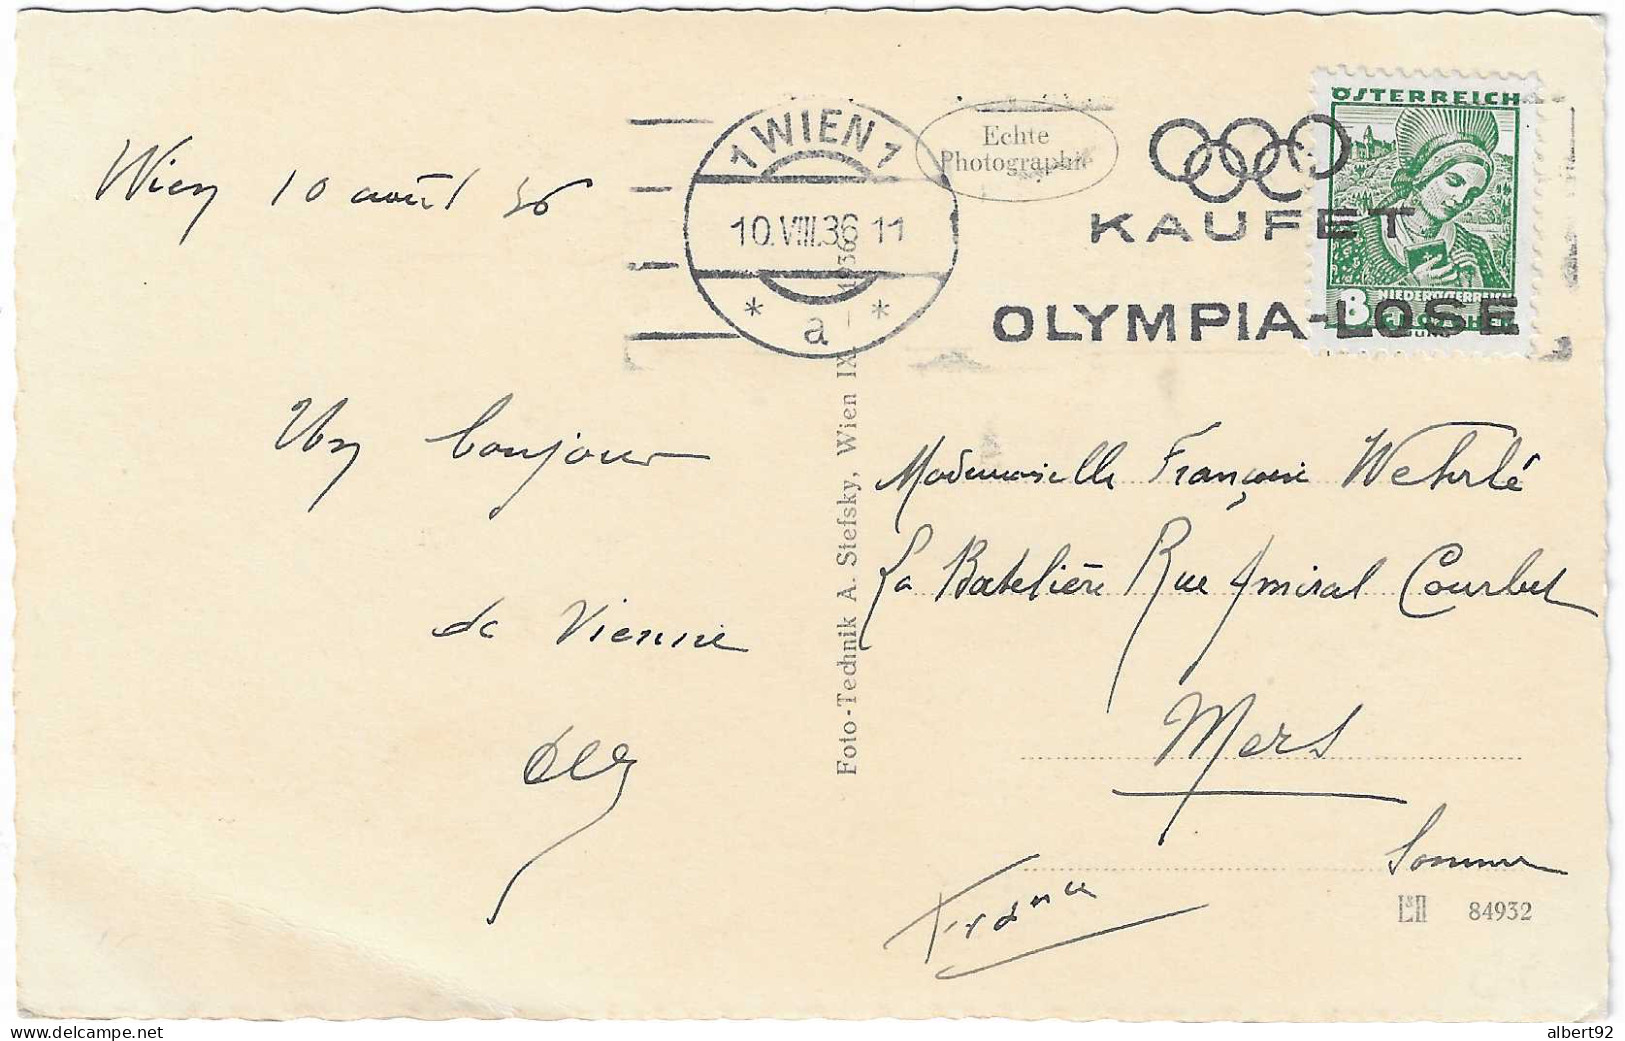 Wien 10 août 36
1 WIEN 1
10.VIII.36 11
* a *
Echte
Photographie
KAUFET
OLYMPIA-LOSE
ÖSTERREICH
8 NIEDERÖSTERREICH
GROSCHEN
Un bonjour
de Vienne
Foto-Technik A. Stefsky, Wien IX. 1936
Mademoiselle Françoise Wehrlé
La Batelière Rue Amiral Courbet
Mers
Somme
France
84932
delcampe.net
albert92